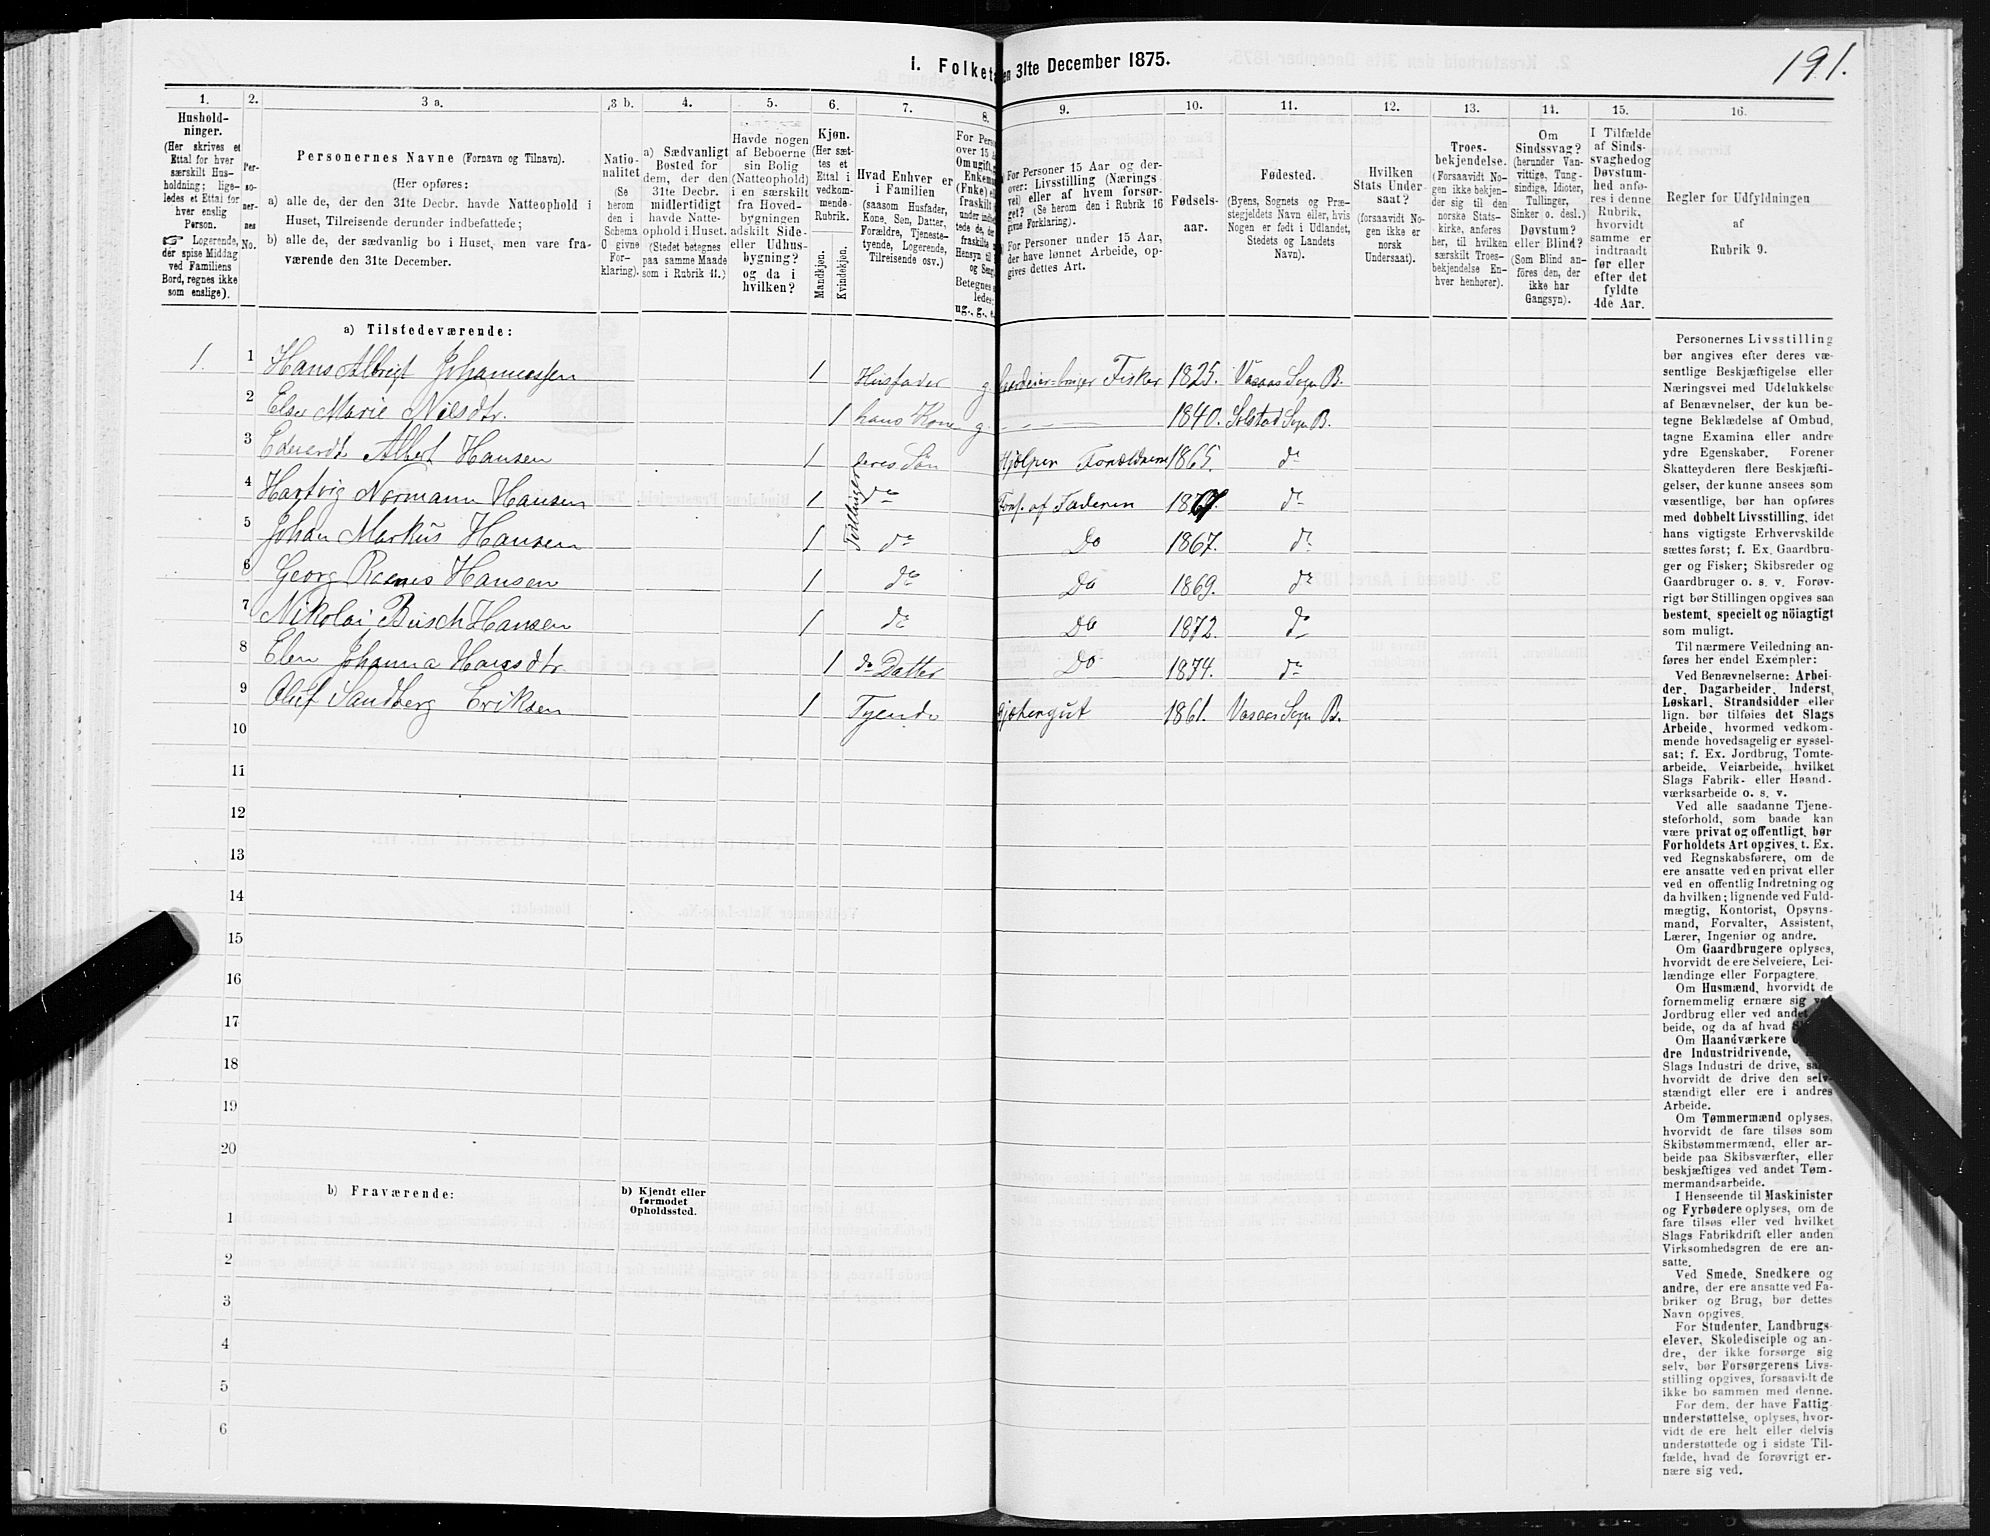 191.
1. Folket en 31te December 1875.
1. 2. 3 a. 3 b. 4. 5. 6. 7. 8. 9. 10. 11. 12. 13. 14. 15. 16.
Hushold-
ninger.
(Her skrives et
Ettal for hver
særskilt Hus-
holdning; lige-
ledes et Ettal for
hver enslig
Person.
☞ Logerende,
der spise Middag
ved Familiens
Bord, regnes ikke
som enslige).
Per-
so-
ner-
nes
No.
Personernes Navne (Fornavn og Tilnavn).
(Her opføres:
a) alle de, der den 31te Decbr. havde Natteophold i
Huset, Tilreisende derunder indbefattede;
b) alle de, der sædvanlig bo i Huset, men vare fra-
værende den 31te December.
Natio-
nalitet
(Se
herom
den i
Schema
O givne
For-
klaring).
a) Sædvanligt
Bosted for
dem, der den
31te Decbr.
midlertidigt
havde Natte-
ophold i Huset.
(Stedet betegnes
paa samme Maade
som i Rubrik 11.)
Havde nogen
af Beboerne
sin Bolig
(Natteophold)
i en særskilt
fra Hoved-
bygningen
adskilt Side-
eller Udhus-
bygning?
og da i
hvilken?
Kjøn.
(Her sæt-
tes et
Ettal i
vedkom-
mende
Rubrik.
Mandkjøn.
Kvindekjøn.
Hvad Enhver er
i Familien
(saasom Husfader,
Kone, Søn, Datter,
Forældre, Tjeneste-
tyende, Logerende,
Tilreisende osv.)
For Pers
over 15 a
Om ugift,
Enkem
(Fnke) e
fraskilt
under indbe
tede de, de
fraskilte
Hensyn til
og Sen
Betegnes
ledes:
ug., g., e.
For Personer 15 Aar og der-
over: Livsstilling (Nærings
vei) eller af hvem forsør-
get? (Se herom den i Rubrik 16
givne Forklaring).
For Personer under 15 Aar,
der have lønnet Arbeide, op-
gives dettes Art.
Fødsels-
aar.
Fødested.
(Byens, Sognets og Præ-
stegjeldets Navn eller, hvis
Nogen er født i Udlandet,
Stedets og Landets
Navn).
Hvilken
Stats Under-
saat?
(forsaavidt No-
gen ikke er
norsk
Undersaat).
Troes-
bekjendelse.
(Forsaavidt No-
gen ikke bekjen-
der sig til den
norske Stats-
kirke, anføres
her, til hvilken
særskilt Troes-
bekjendelse En-
hver henhører).
Om
Sindssvag?
(herunder Van-
vittige, Tung-
sindige, Idioter,
Tullinger,
Sinker o. desl.)
Døvstum?
eller Blind?
(Som Blind an-
føres den, der
ikke har
Gangsyn).
I Tilfælde
af Sinds-
svaghed og
Døvstum-
hed anfø-
res i denne
Rubrik,
hvorvidt
samme er
indtraadt
før eller
efter det
fyldte
4de Aar.
Regler for Udfyldningen
af
Rubrik 9.
a) Tilstedeværende:
1. 1 Hans Albrigt Johannessen 1 Husfader g Fisker 1825. Vasaas Sogn B.
2 Else Marie Nilsdtr. 1 hans Kone g. 1840. Solstad Sogn B.
3 Edvardt Albert Hansen 1 deres Søn Hjælper Forældrene 1865. do
4 Hartvig Normann Hansen 1 do Fors. af Faderen 1867. do
Tvillinger
5 Johan Markus Hansen 1 do Do 1867. do
6 Georg Hansen 1 do Do 1869. do
7 Nikolai Busch Hansen 1 do Do 1872. do
8 Elen Johanna Hansdtr. 1 do Datter Do 1874. do
9 Oluf Sandberg Eriksen 1 Tyende Gjætergut 1861. Vasaas Sogn B.
10
11
12
13
14
15
16
17
18
19
20
b) Fraværende:
b) Kjendt eller
formodet
Opholdssted.
1
2
3
4
5
6
Personernes Livsstilling
bør angives efter deres væ-
sentlige Beskjæftigelse eller
Næringsvei med Udelukkelse
af Benævnelser, der kun be-
tegne Beklædelse af Ombud,
tagne Examina eller andre
ydre Egenskaber. Forener
Skatteyderen flere Beskjæfti-
gelser, der kunne ansees som
væsentlige, bør han opføres
med dobbelt Livsstilling, idet
hans vigtigste Erhvervskilde
sættes først; f. Ex. Gaardbru-
ger og Fisker; Skibsreder og
Gaardbruger o. s. v. Forøv-
rigt bør Stillingen opgives saa
bestemt, specielt og nöiagtigt
som muligt.
Til nærmere Veiledning an-
føres her endel Exempler:
Ved Benævnelserne: Arbei-
der, Dagarbeider, Inderst,
Løskarl, Strandsidder eller
lign. bør tilføies det Slags
Arbeide, hvormed vedkom-
mende hovedsagelig er syssel-
sat; f. Ex. Jordbrug, Tomte-
arbeide, Veiarbeide, hvilket
Slags Fabrik- eller Haand-
værksarbeide o. s. v.
Ved alle saadanne Tjene-
steforhold, som baade kan
være privat og offentligt, bør
Forholdets Art opgives, t. Ex.
ved Regnskabsførere, om de
ere ansatte ved en privat eller
ved en offentlig Indretning og
da hvilken; lignende ved Fuld-
mægtig, Kontorist, Opsyns-
mand, Forvalter, Assistent,
Lærer, Ingeniør og andre.
Om Gaardbrugere oplyses,
hvorvidt de ere Selveiere, Lei-
lændinge eller Forpagtere.
Om Husmænd, hvorvidt de
fornemmelig ernære sig ved
Jordbrug eller ved andet
beide, og da af hvad
Om Haandværkere
dre Industridrivende,
Slags Industri de drive,
hvorvidt de drive den selv-
stændigt eller ere i andres
Arbeide.
Om Tømmermænd oplyses,
hvorvidt de fare tilsøs som
Skibstømmermænd, eller ar-
beide paa Skibsværfter, eller
beskjæftiges ved andet Tøm-
mermandsarbeide.
I Henseende til Maskinister
og Fyrbødere oplyses, om de
fare tilsøs eller ved hvilket
Slags Fabrikdrift eller anden
Virksomhedsgren de ere an-
satte.
Ved Smede, Snedkere og
andre, der ere ansatte ved Fa-
briker og Brug, bør dettes
Navn opgives.
For Studenter, Landbrugs-
elever, Skoledisciple og an-
dre, der ikke forsørge sig
selv, bør Forsørgerens Livs-
stilling opgives, forsaavidt de
ikke bo sammen med denne.
For dem, der have Fattig-
understøttelse, oplyses, hvor-
vidt de ere helt eller delvis
understøttede og i sidste Til-
fælde, hvad de forøvrigt er-
nære sig ved.